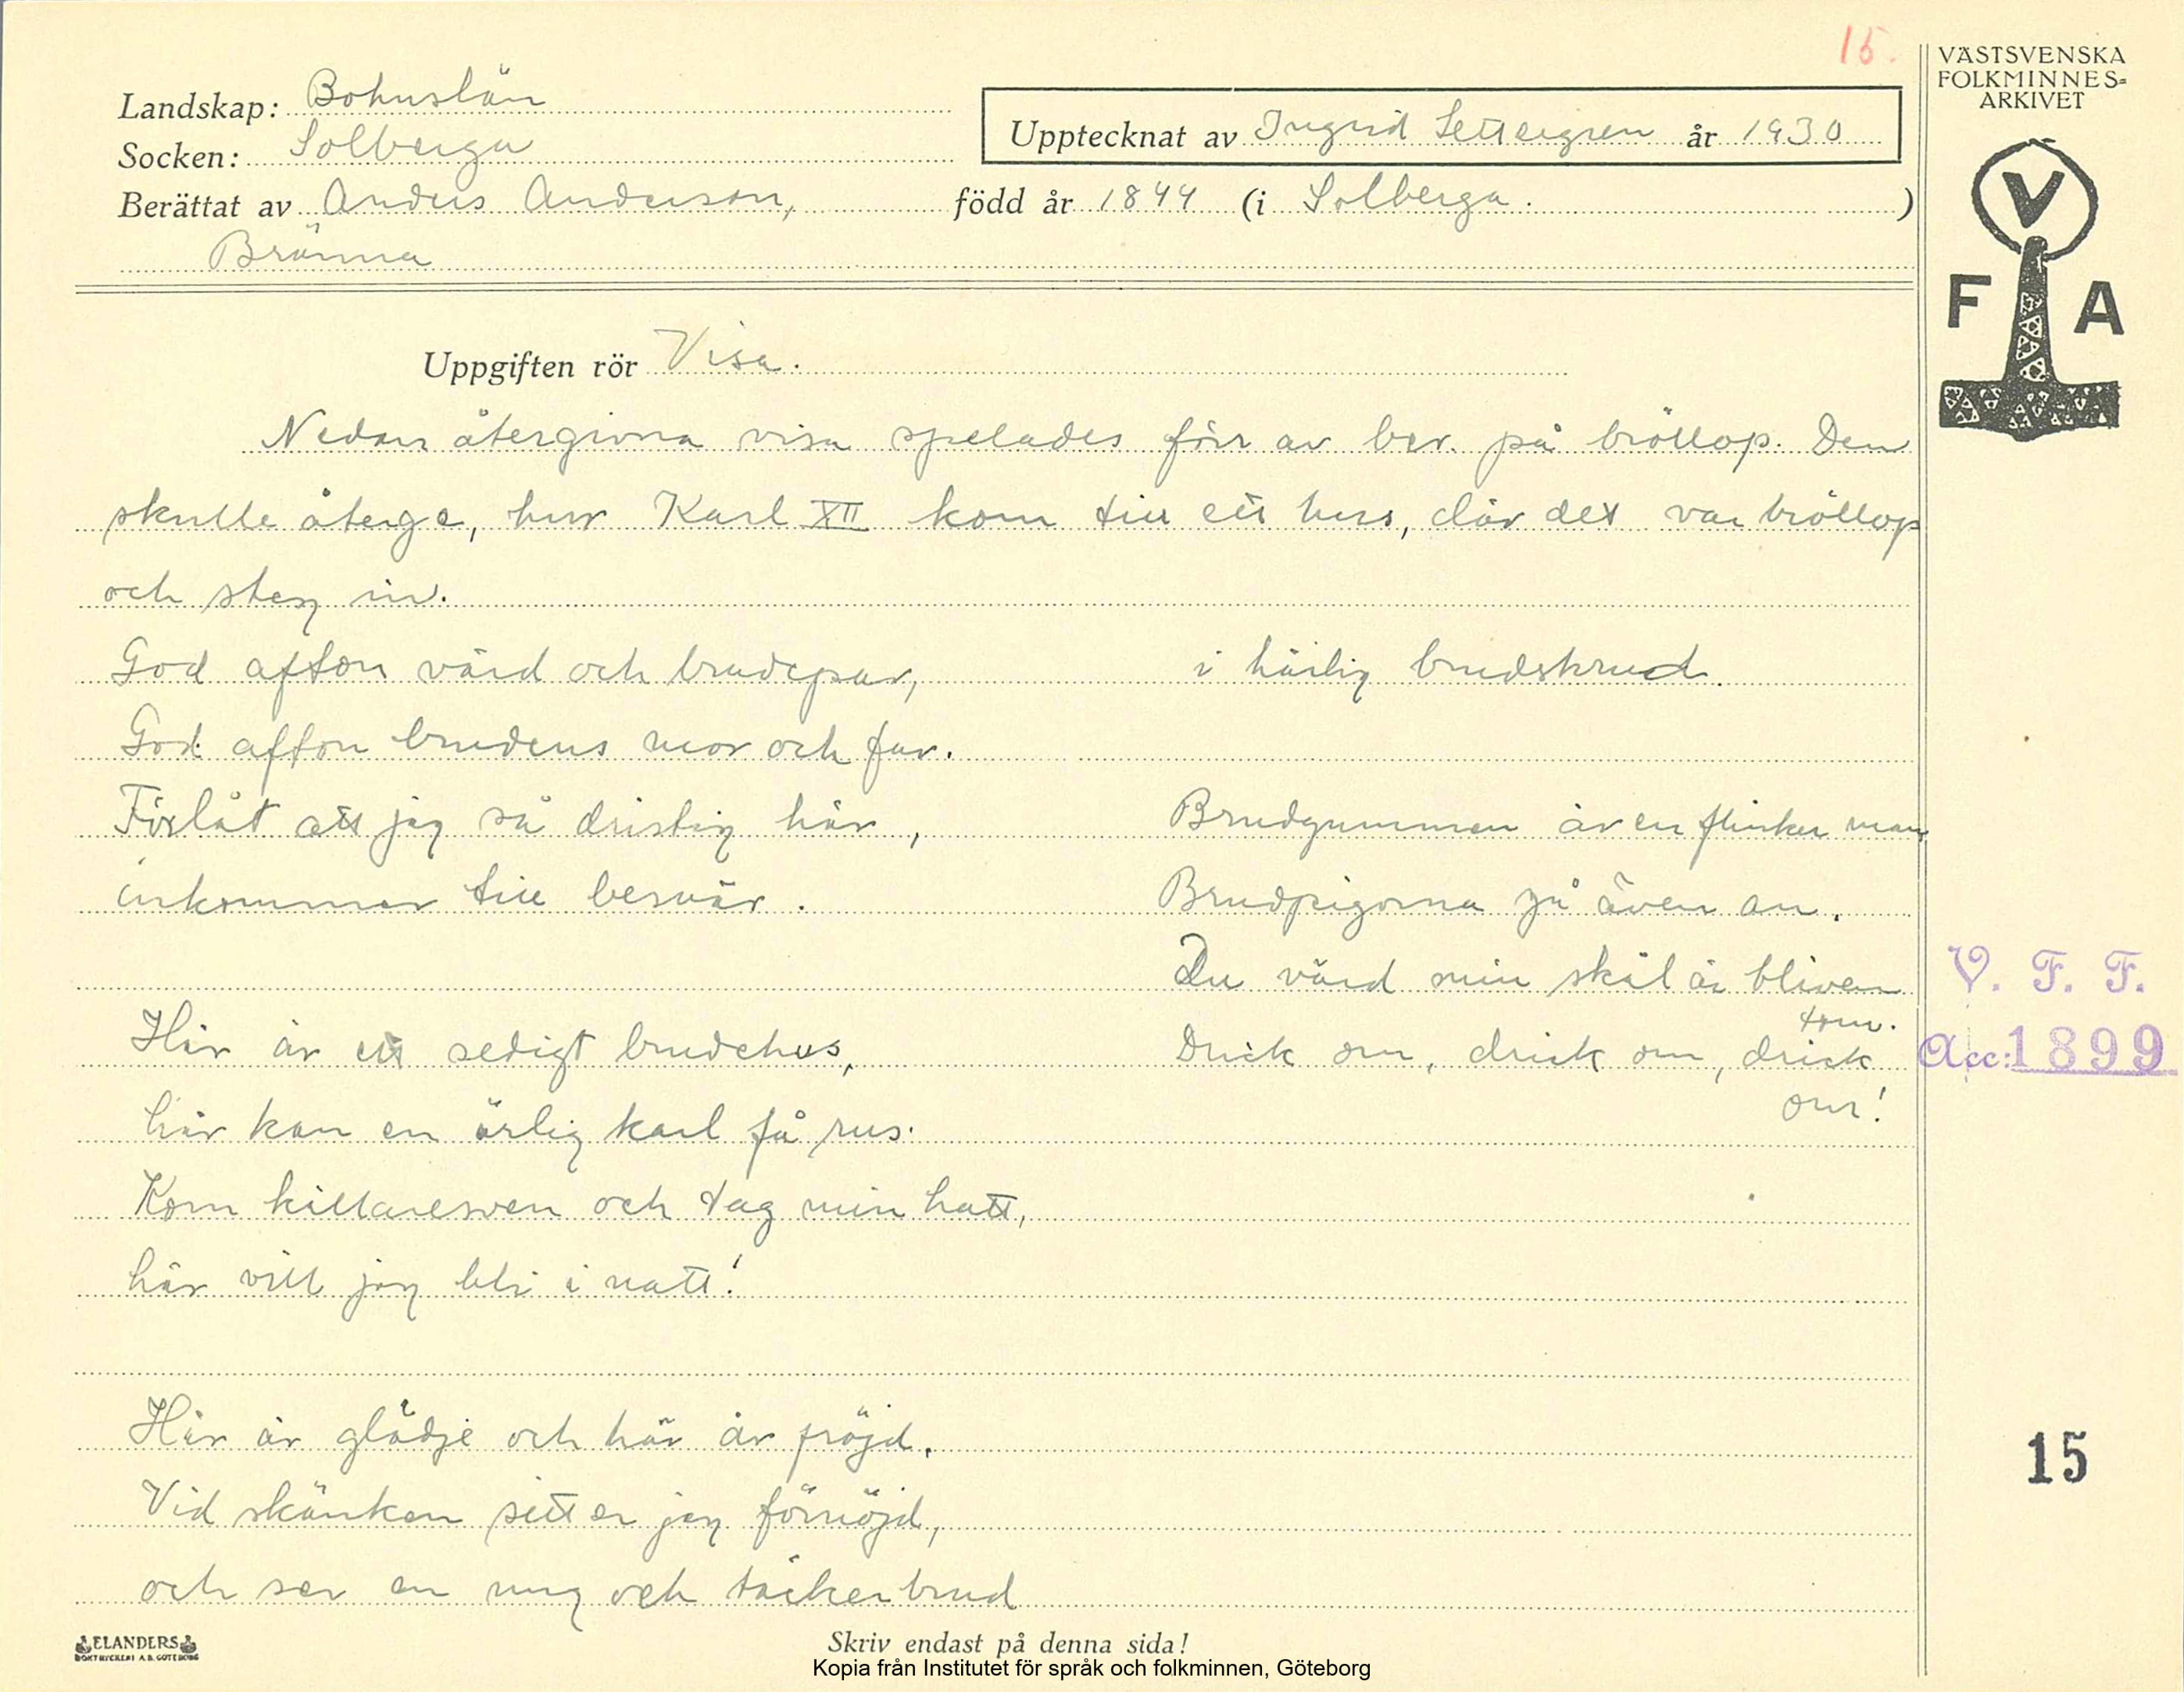 15.
VÄSTSVENSKA
FOLKMINNES-
ARKIVET
V
F A
Landskap: Bohuslän
Socken: Solberga
Upptecknat av Ingrid Settergren år 1930
Berättat av Anders Anderson, född år 1844 (i Solberga. )
Bränna
Uppgiften rör Visa.
Nedan återgivna visa spelades förr av ber. på bröllop. Den
skulle återge, hur Karl XII kom till ett hus, där det var bröllop
och steg in.
God afton värd och brudepar,
God afton brudens mor och far.
Förlåt att jag så dristig här,
inkommer till besvär.
Här är ett sedigt brudehus,
här kan en ärlig karl få rus.
Kom killaresven och tag min hatt,
här vill jag bli i natt!
Här är glädje och här är fröjd.
Vid skänken sitter jag förnöjd,
och ser en ung och täcker brud
i härlig brudskrud.
Brudgummen är en flinker man,
Brudpigorna gå även an.
Du värd min skål är bliven
tom.
Drick om, drick om, drick
om!
V. F. F.
Acc: 1899
15
ELANDERS
BOKTRYCKERI A.B. GÖTEBORG
Skriv endast på denna sida!
Kopia från Institutet för språk och folkminnen, Göteborg